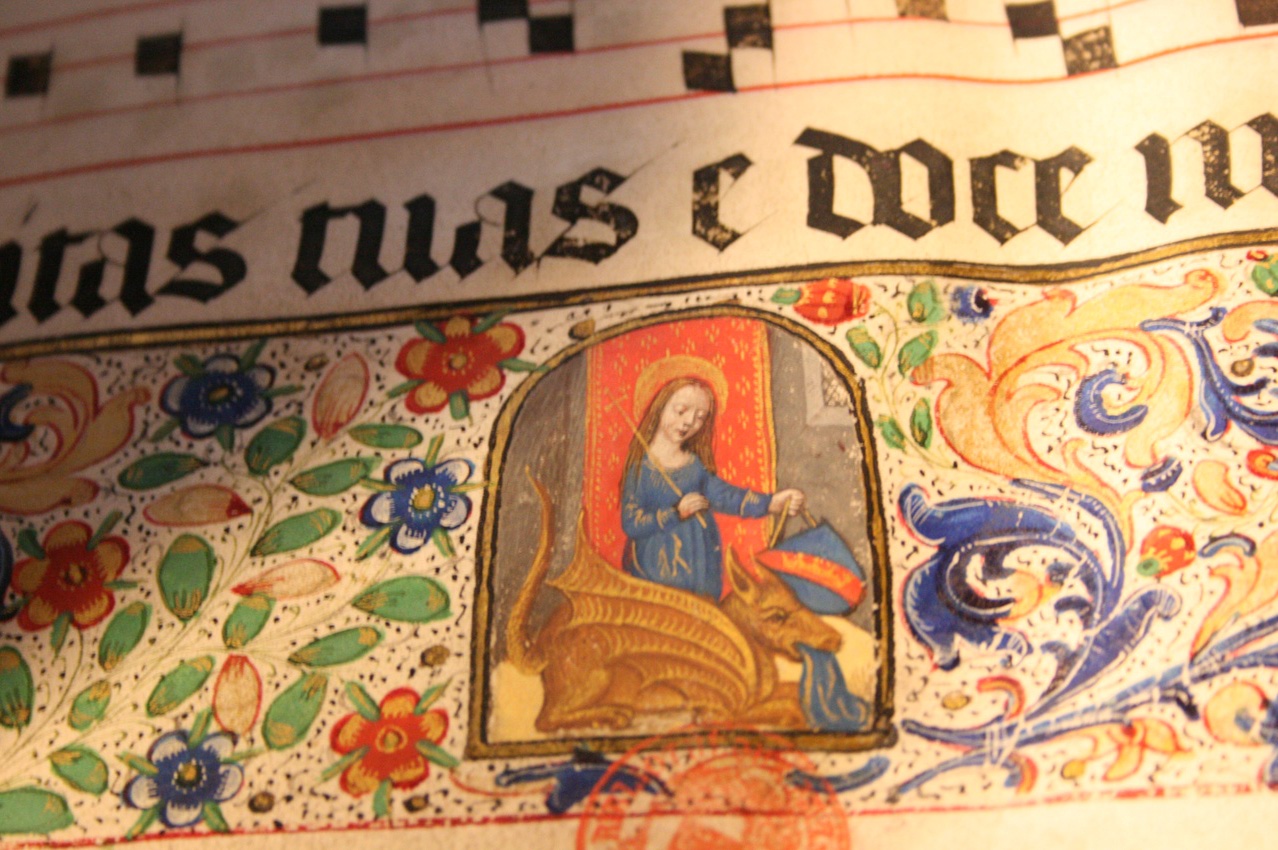 itas tuas e doce m